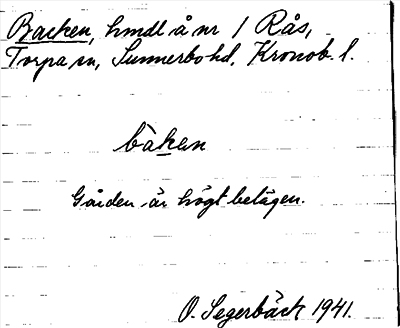 Backen, hmdl å nr 1 Rås,
Torpa sn, Sunnerbo hd, Kronob. l.
bàkan
Gården är högt belägen.
O. Segerbäck 1941.